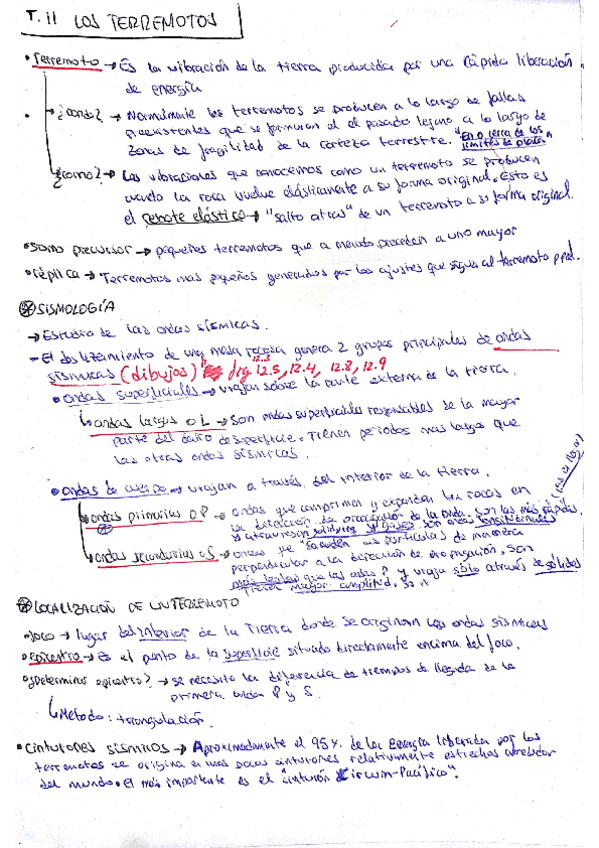 T. 11 LOS TERREMOTOS
• Terremoto → Es la vibración de la tierra producida por una rápida liberación
de energía
→ ¿donde? → Normalmente los terremotos se producen a lo largo de fallas
preexistentes que se formaron el el pasado lejano a lo largo de
zonas de fragilidad de la corteza terrestre. "En o cerca de los
límites de placa"
¿como? → Las vibraciones que conocemos como un terremoto se producen
cuando la roca vuelve elásticamente a su forma original. Esto es
el rebote elástico → "salto atras" de un terremoto a su forma original.
• Sismo precursor → pequeños terremotos que a menudo preceden a uno mayor
• réplica → Terremotos mas pequeños generados por los ajustes que sigue al terremoto ppal.
SISMOLOGÍA
→ Estudio de las ondas sísmicas.
- El deslizamiento de una masa rocosa genera 2 grupos principales de ondas
sísmicas (dibujos) fig 12.3 12.5, 12.4, 12.8, 12.9
• ondas superficiales → viajan sobre la parte externa de la tierra.
↳ ondas largas o L → son ondas superficiales responsables de la mayor
parte del daño de superficie. Tienen periodos mas largos que
las otras ondas sísmicas.
• ondas de cuerpo → viajan a través del interior de la tierra.
ondas primarias o P → ondas que comprimen y expanden las rocas en
la dirección de propagación de la onda. son las más rápidas
y atraviesan solidos y gases. son ondas longitudinales
ondas secundarias o S → ondas que "sacuden" las partículas de manera
perpendicular a la dirección de propagación. son
más lentas que las ondas P y viaja sólo através de sólidos
Tienen mayor amplitud.
LOCALIZACIÓN DE UN TERREMOTO
• foco → lugar del interior de la Tierra donde se originan las ondas sísmicas
• epicentro → Es el punto de la superficie situado directamente encima del foco.
• ¿Determinar epicentro? → se necesita la diferencia de tiempos de llegada de la
primera onda P y S.
↳ Método: triangulación.
• Cinturones sísmicos → Aproximadamente el 95%. de la energía liberada por los
terremotos se origina en unos pocos cinturones relativamente estrechos alrededor
del mundo. el más importante es el "cinturón Circum-Pacífico".